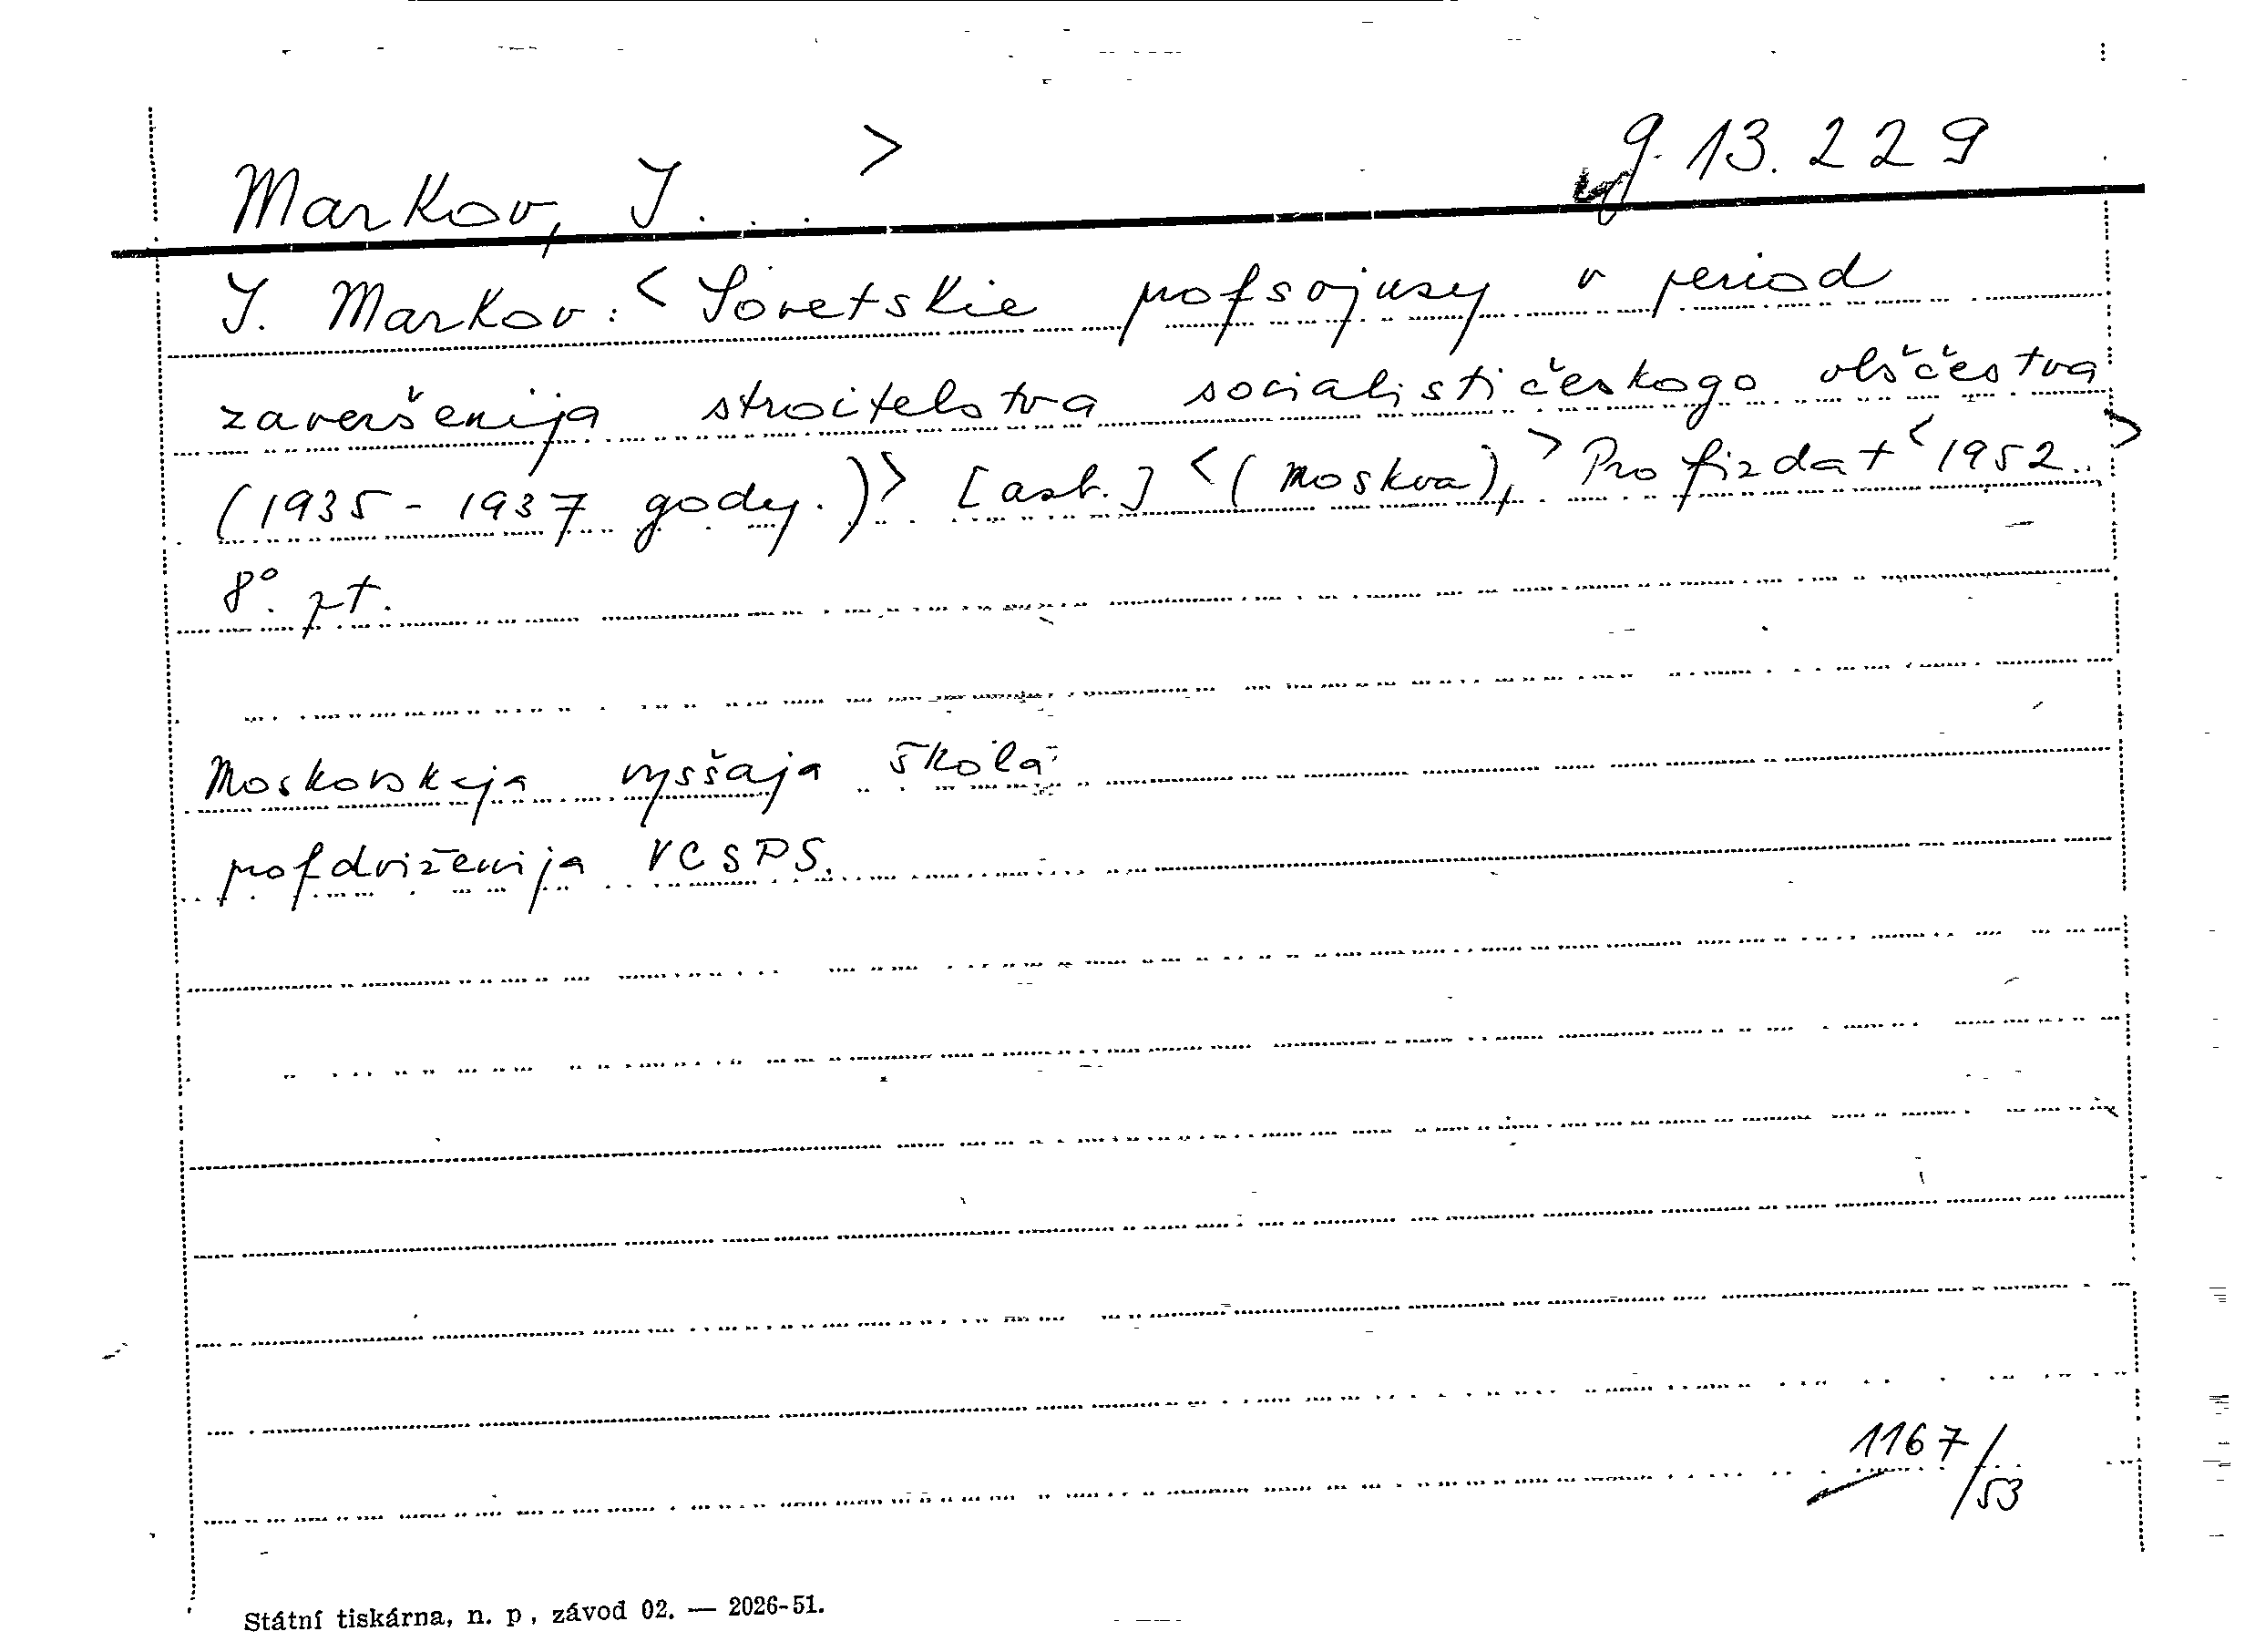 Markov, J... > g. 13.229
J. Markov: < Sovetskie profsojusy v period
zaveršenija stroitelstva socialističeskogo obščestva
(1935-1937 gody.)> [ast.] <(Moskva), > Profizdat < 1952.. >
8°. pt.
Moskovskaja vysšaja škola
profdviženija VCSPS.
1167/53
Státní tiskárna, n. p., závod 02. — 2026-51.